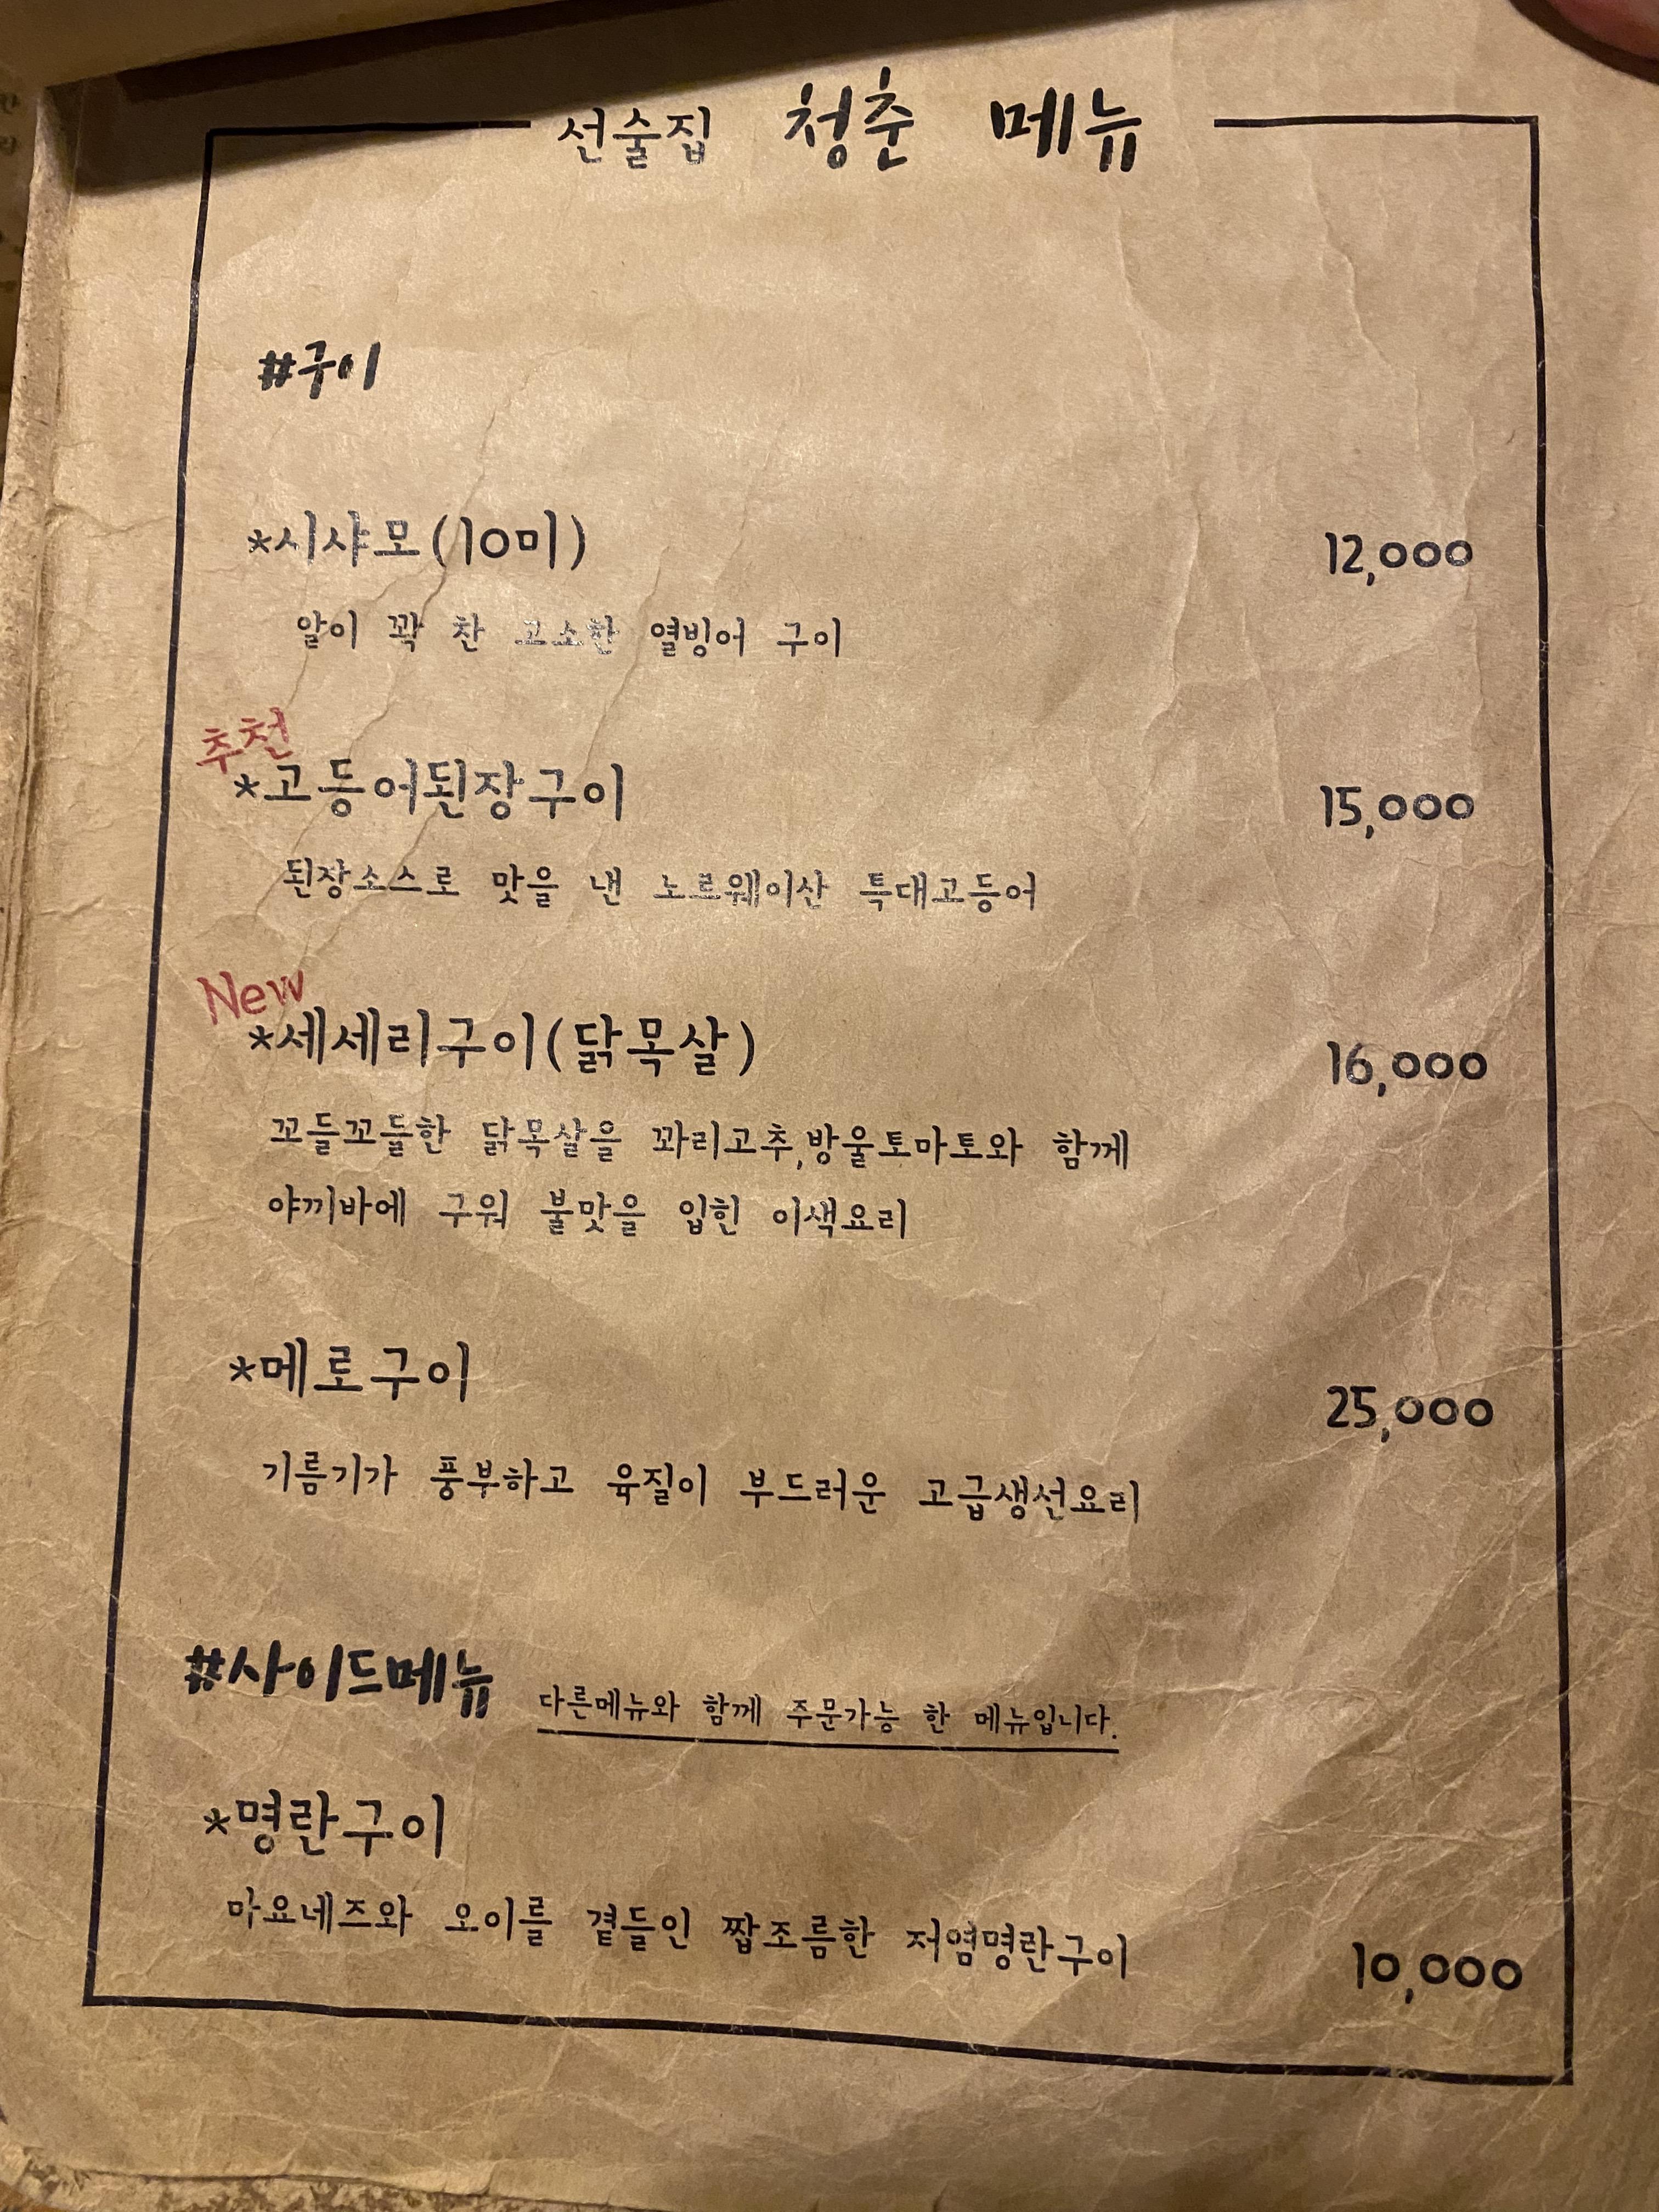 선술집 청춘 메뉴
#구이
*시샤모(10미) 12,000
알이 꽉 찬 고소한 열빙어 구이
추천
*고등어된장구이 15,000
된장소스로 맛을 낸 노르웨이산 특대고등어
New
*세세리구이(닭목살) 16,000
꼬들꼬들한 닭목살을 꽈리고추,방울토마토와 함께
야끼바에 구워 불맛을 입힌 이색요리
*메로구이 25,000
기름기가 풍부하고 육질이 부드러운 고급생선요리
#사이드메뉴 다른메뉴와 함께 주문가능 한 메뉴입니다.
*명란구이
마요네즈와 오이를 곁들인 짭조름한 저염명란구이 10,000